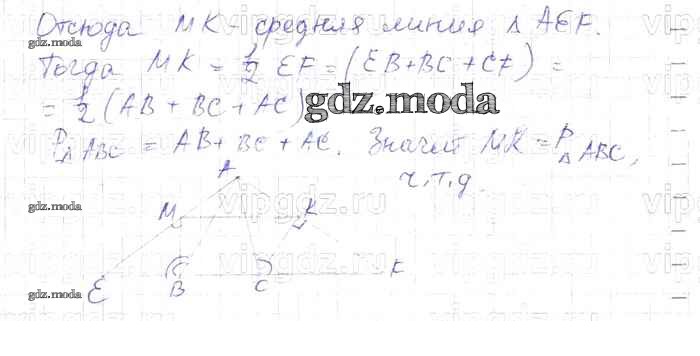 Отсюда MK - средняя линия △ AEF.
Тогда MK = 1/2 EF = (EB+BC+CF) =
= 1/2 (AB + BC + AC)
gdz.moda
P△ABC = AB + BC + AC. Значит MK = P△ABC,
ч.т.д.
A
M K
E B C F
gdz.moda
gdz.moda
gdz.moda
vipgdz.ru
vipgdz.ru
vipgdz.ru